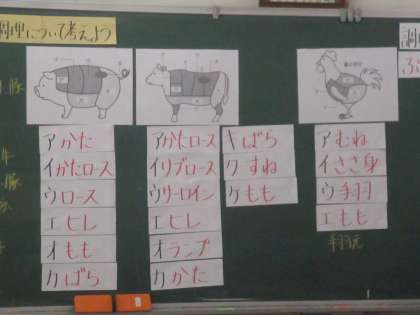 調理について考えよう
豚
アかた
イかたロース
ウロース
エヒレ
オもも
カばら
アかたロース
イリブロース
ウサーロイン
エヒレ
オランプ
カかた
キばら
クすね
ケもも
アむね
イささ身
ウ手羽
エもも
手羽元